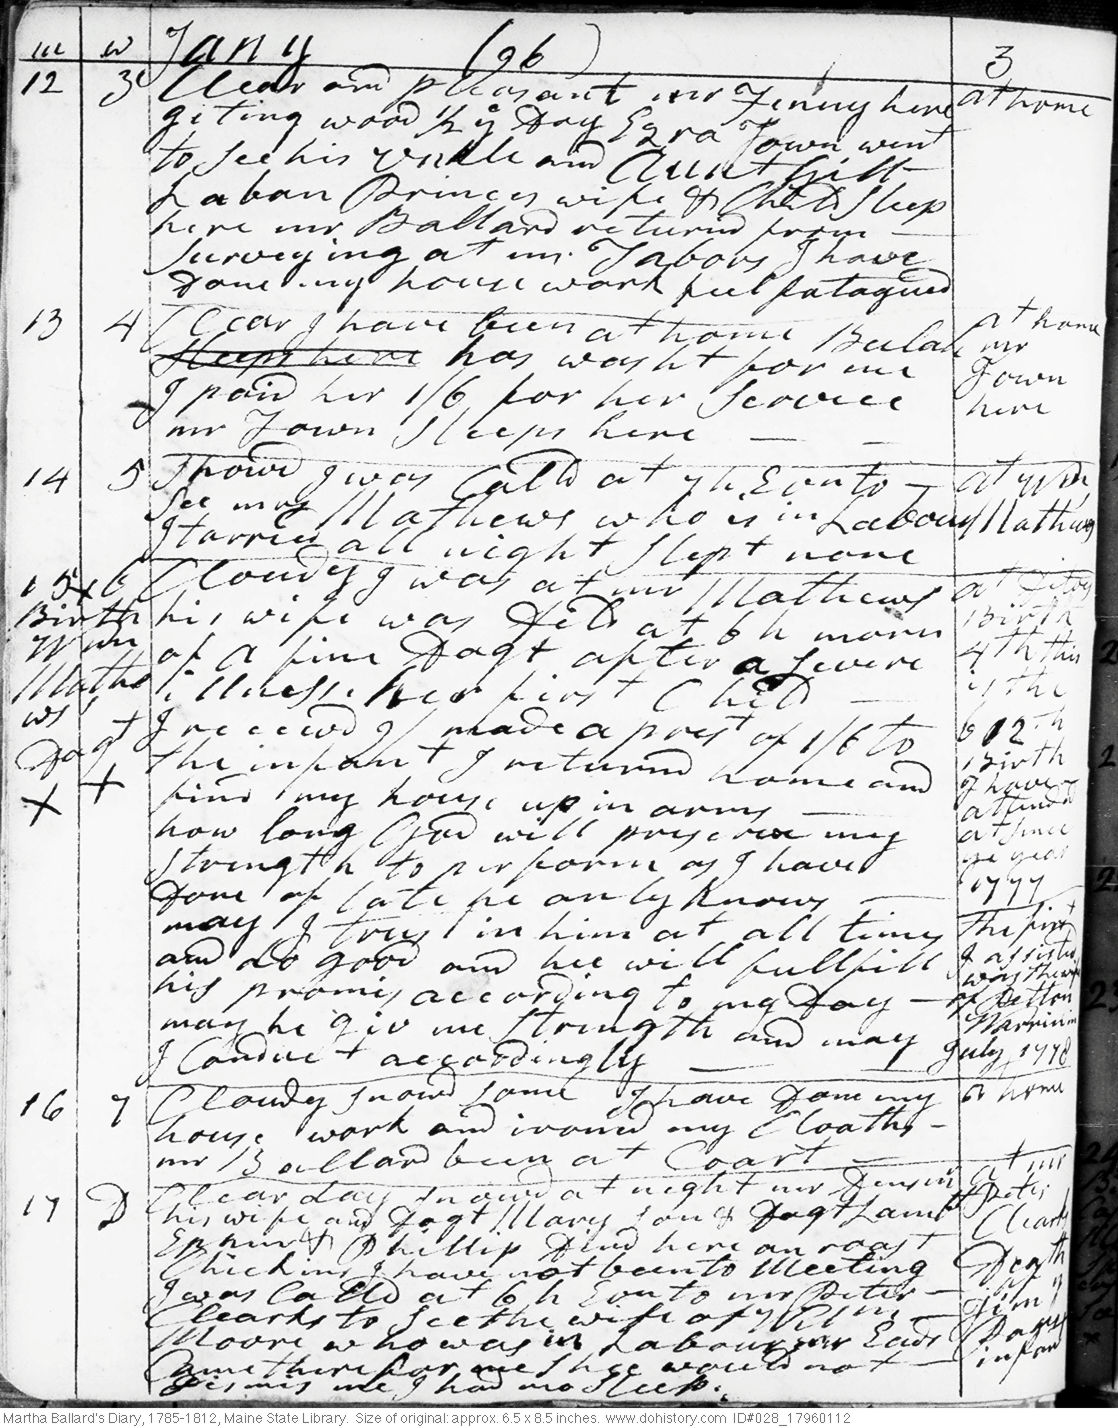 m w Jany (96) 3
12 3 Clear and pleasant mr Finny here at home
giting wood ½ ye Day Ezra Town went
to See his Unkle and Aunt Gill
Laban Princes wife & Child Sleep
here mr Ballard returnd from
Surveying at mr Tabors I have
Done my house work feel fatagued
13 4 Clear I have been at home Beulah
Sleeps here has washt for me
I paid her 1/6 for her Service
mr Town Sleeps here
at home
mr
Town
here
14 5 Thowd I was Calld at 7 h Evn to
See mrs Mathews who is in Labour
I tarried all night Slept none
at Wm
Mathews
15 6 Cloudy I was at mr Mathews
his wife was Deld at 6 h morn
of a fine Dagt after a Severe
illness her first Child
I receivd 9/ made a prest of 1/6 to
the infant I returnd home and
find my house up in arms
how long God will preserve my
Strength to perform as I have
Done of late he only knows
may I trust in him at all times
and do good and hee will fullfill
his promis according to my Day
may he giv me Strength and may
I Conduct accordingly
x
Birth
Wm
Mathe
ws
Dagt
x x
at Ditos
Birth
4th this
is the
612th
Birth
I have
attended
at since
ye year
1777
The first
I assisted
was the wife
of Pelton
Warrin in
July 1778
16 7 Cloudy snowd some I have Done my
house work and ironed my Cloaths
mr Ballard been at Coart
at home
17 D Clear day snowd at night mr Densin
his wife and Dagt Mary Son & Dagt Lamb
Ephm & Phillip Dind here on roast
Chickins I have not been to Meeting
I was Calld at 6 h Evn to mr Peter
Clearks to See the wife of
Moore who was in Labour mr Eads
Came there for me Shee would not
Dismis me I had no Sleep.
at mr
Peter
Clearks
Death
of
Jim
infant
Martha Ballard's Diary, 1785-1812, Maine State Library. Size of original: approx. 6.5 x 8.5 inches. www.dohistory.com ID#028_17960112